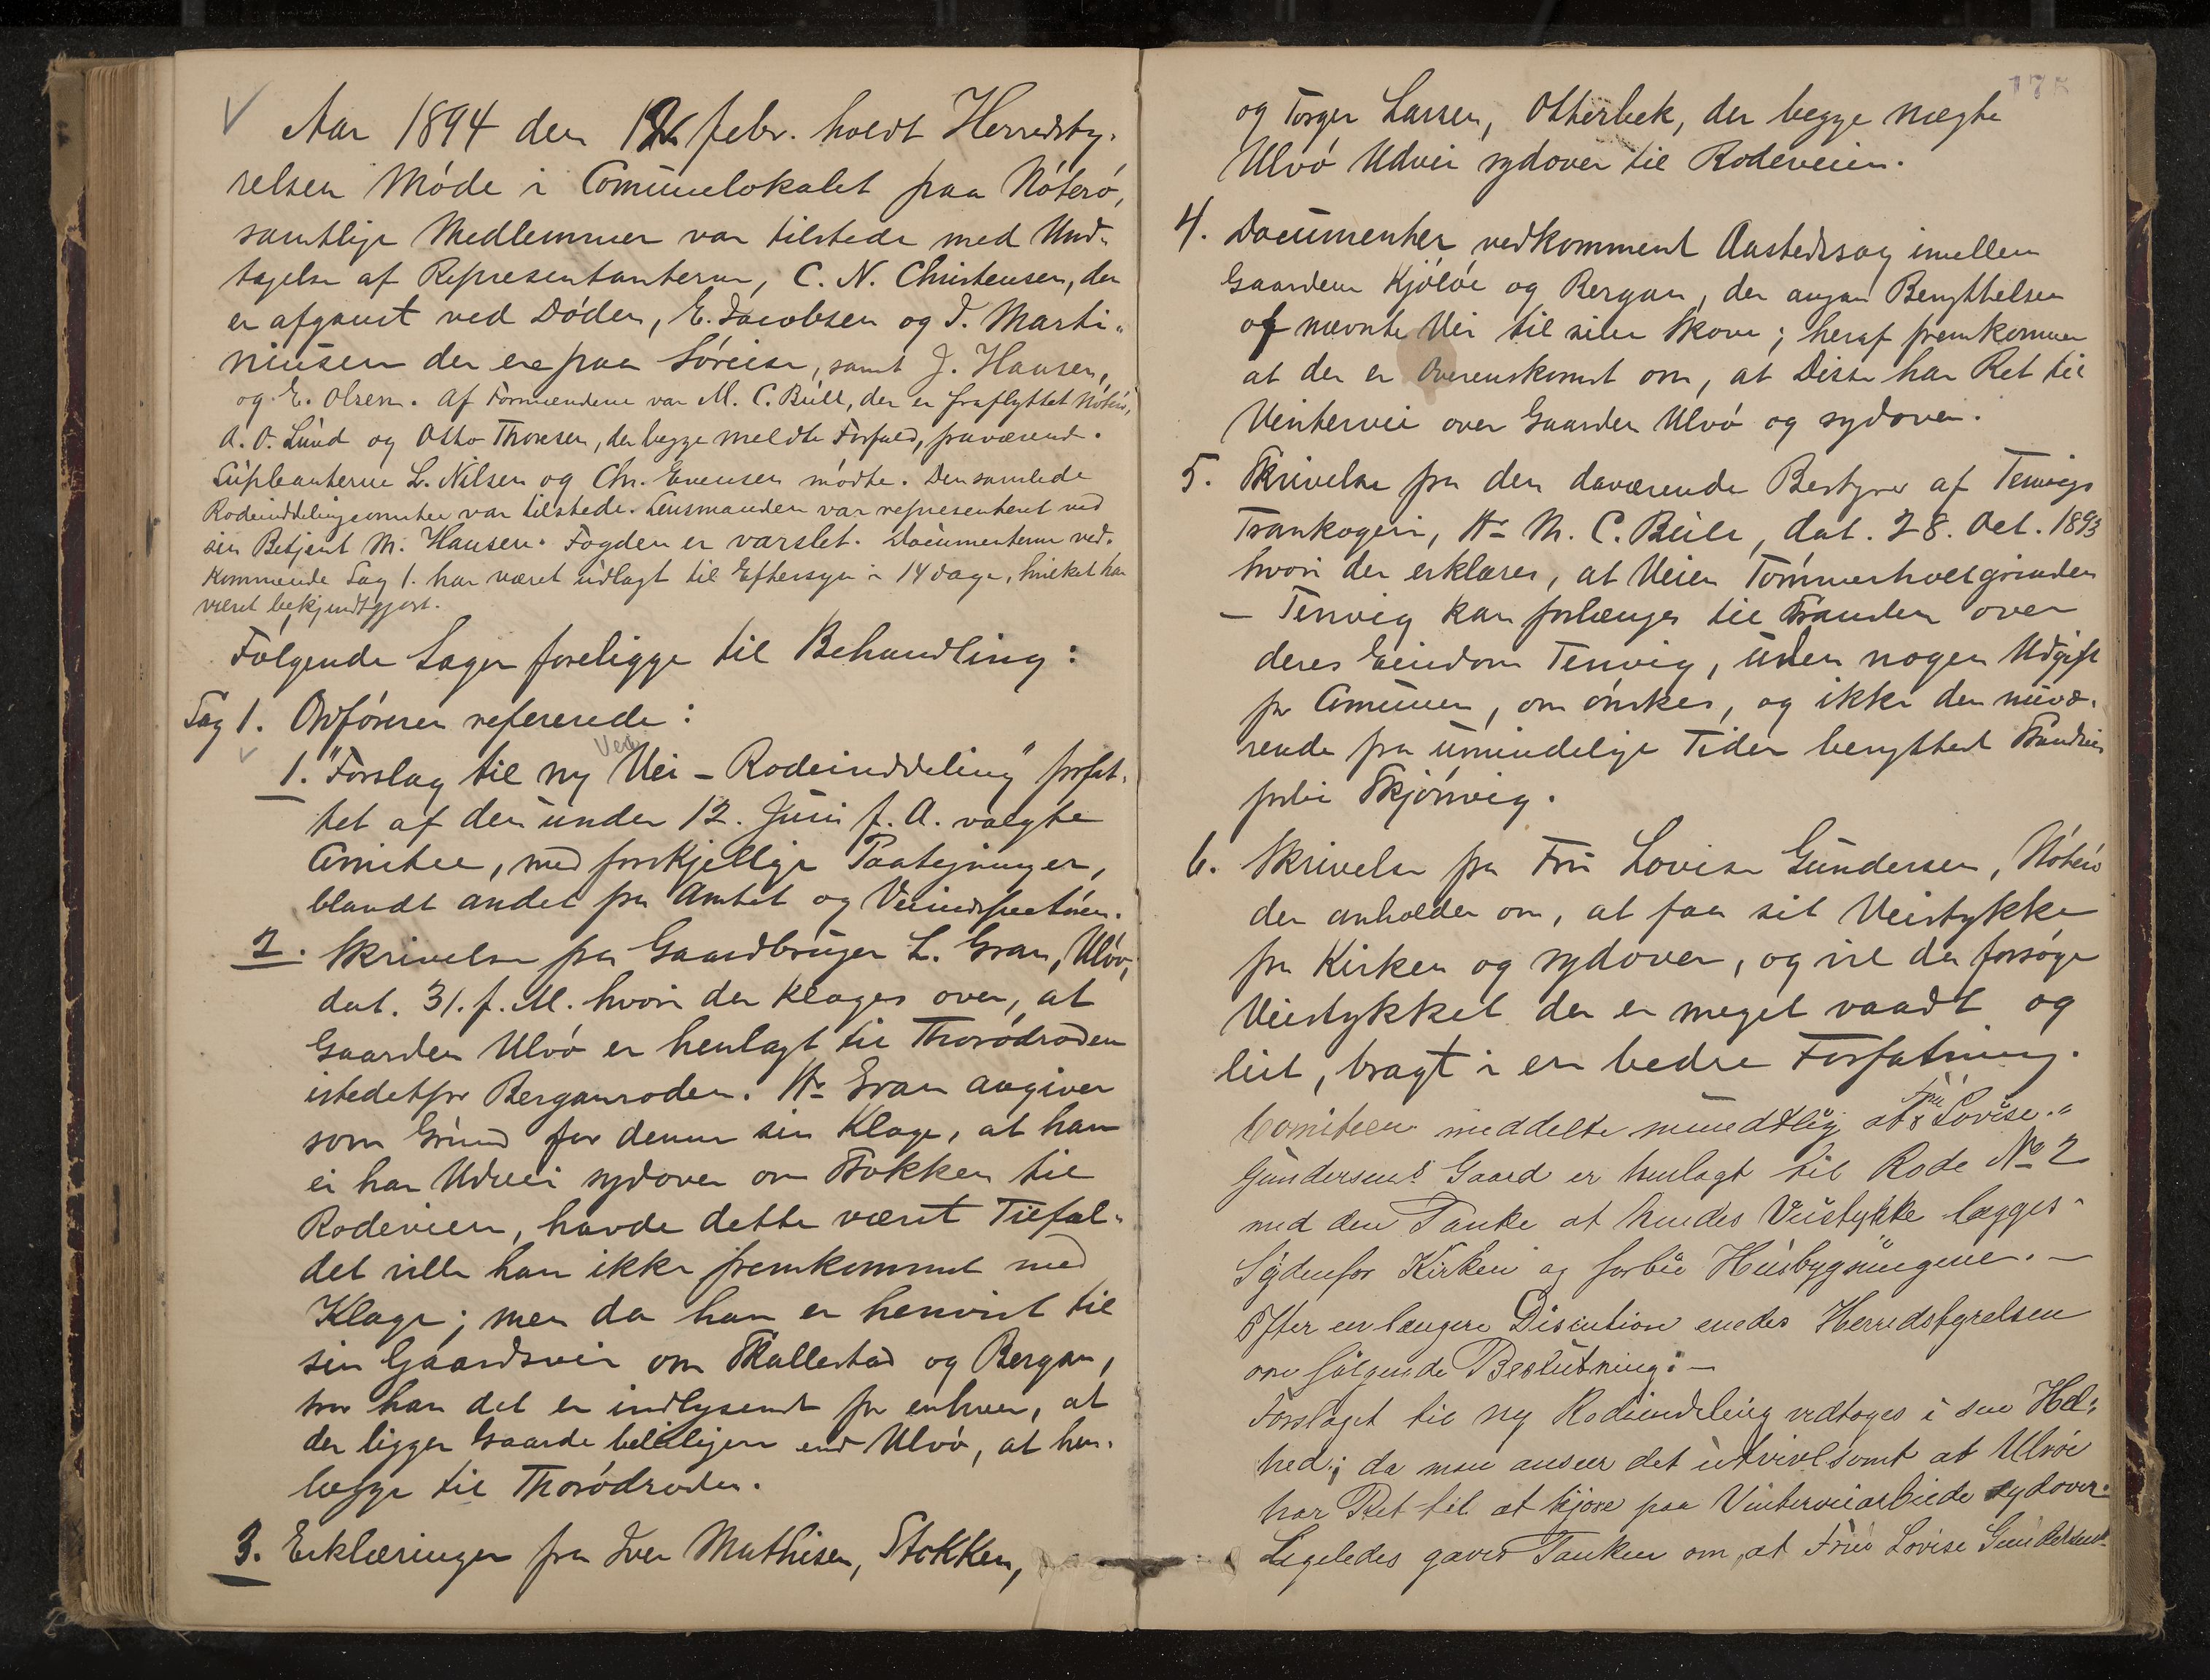 Aar 1894 den 12 febr. holdt Herredsty-
relsen Møde i Comunelokalet paa Nøterø,
samtlige Medlemmer var tilstede med Und-
tagelse af Representanterne, C. N. Christensen, der
er afgaaet ved Døden, E. Jacobsen og J. Marti-
niusen der ere paa Søreise, samt J. Hansen,
og E. Olsen. Af Formændene var M. C. Bull, der er fraflyttet Nøterø,
A. O. Lund og Otto Thoresen, der begge meldte Forfald, fraværende.
Supleanterne L. Nilsen og Chr. Evensen mødte. Den samlede
Rodeinddelingscomitee var tilstede. Lensmanden var representeret ved
sin Betjent M. Hansen. Fogden er varslet. Documenterne ved-
kommende Sag 1. har været udlagt til Eftersyn i 14 dage, hvilket har
været bekjendtgjort.
Følgende Sager foreligge til Behandling:
Sag 1. Ordføreren refererede:
1. "Forslag til ny Vei-Rodeinddeling" forfat-
tet af den under 12. Juni f. A. valgte
Comitee, med forskjellige Paategninger,
blandt andet fra Amtet og Veiinspectøren.
2. Skrivelse fra Gaardbruger L. Gran, Ulvø,
dat. 31. f. M. hvori der klages over, at
Gaarden Ulvø er henlagt til Thorødroden
istedetfor Berganroden. Hr Gran angiver
som Grund for denne sin Klage, at han
ei har Udvei sydover om Stokken til
Rodeveien, havde dette været Tilfæl-
det ville han ikke fremkommet med
Klage; men da han er henvist til
sin Gaardsvei om Skallestad og Bergan,
tror han det er indlysende for enhver, at
der ligger Gaarde beleiligere end Ulvø, at hen-
lægge til Thorødroden.
3. Erklæringer fra Iver Mathisen, Stokken,
og Torger Larsen, Otterbek, der begge nægte
Ulvø Udvei sydover til Rodeveien.
4. Documenter vedkomment Aastedssag imellem
Gaardene Kjøløe og Bergan, der angaar Benyttelsen
af nævnte Vei til sine Skove; heraf fremkommer
at der er Overenskomst om, at Disse har Ret til
Vintervei over Gaarden Ulvø og sydover.
5. Skrivelse fra den daværende Bestyrer af Tenvigs
Trankogeri, Hr M. C. Bull, dat. 28. Oct. 1893
hvori der erklæres, at Veien Tømmerholtgrinden
- Tenvig kan forlænges til Stranden over
deres Eiendom Tenvig, uden nogen Udgift
for Comunen, om ønskes, og ikke den nuvæ-
rende fra umindelige Tider benyttet Strandvei
forbi Skjønvig.
6. Skrivelse fra Fru Lovise Gundersen, Nøterø
der anholder om, at faa sit Veistykke
fra Kirken og sydover, og vil da forsøge
Veistykket der er meget vaadt og
leit, bragt i en bedre Forfatning.
Comiteen meddelte mundtlig at Fru Lovise
Gundersens Gaard er henlagt til Rode No 2
med den Tanke at hendes Veistykke lægges
Søndenfor Kirken og forbi Husbygningene.
Efter en længere Discution enedes Herredstyrelsen
om følgende Beslutning:
Forslaget til ny Rodeinddeling vedtages i sin Hel-
hed; da man anseer det utvivlsomt at Ulvøe
har Ret til at kjøre paa Vinterveiarbeide sydover.
Ligeledes gaves Tanken om, at Frue Lovise Gundersens